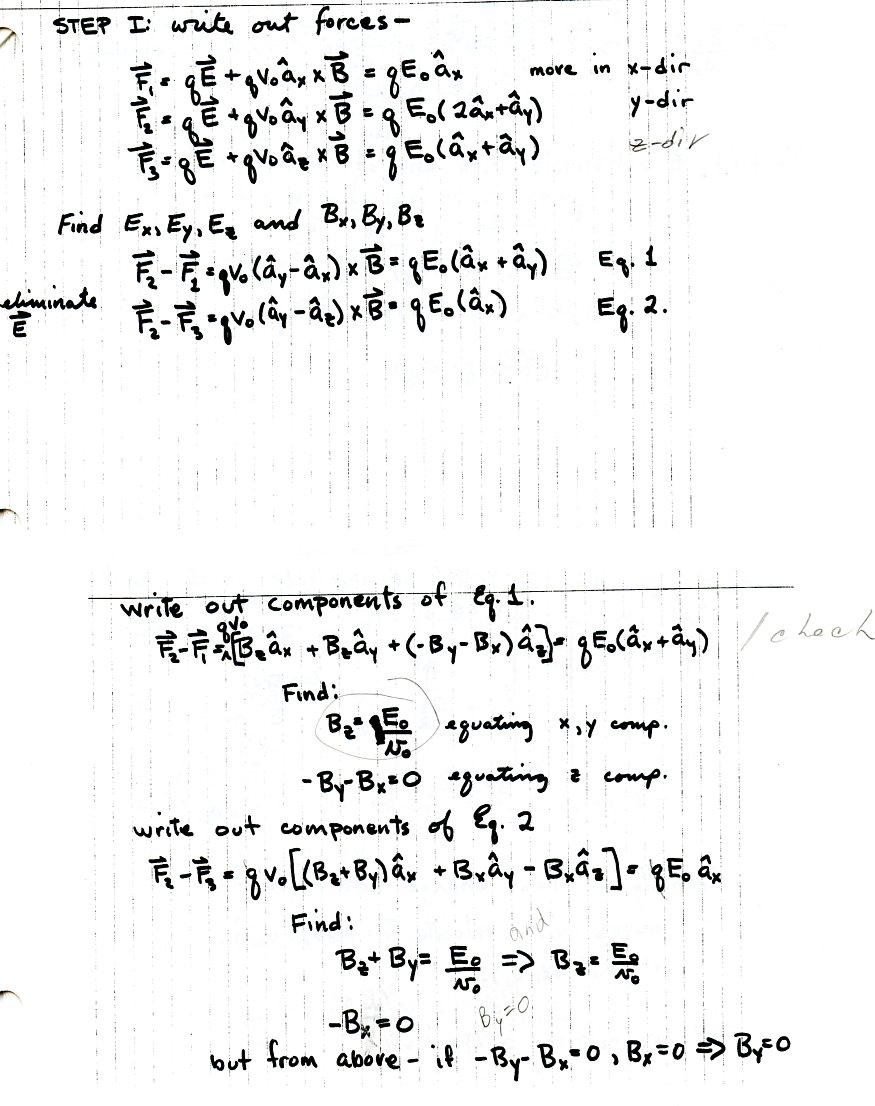 STEP I: write out forces-
F⃗₁ = qE⃗ + qv₀âₓ × B⃗ = qE₀âₓ move in x-dir
F⃗₂ = qE⃗ + qv₀â_y × B⃗ = qE₀(2âₓ+â_y) y-dir
F⃗₃ = qE⃗ + qv₀â_z × B⃗ = qE₀(âₓ+â_y) z-dir
Find Eₓ, E_y, E_z and Bₓ, B_y, B_z
F⃗₂-F⃗₁ = qv₀(â_y-âₓ) × B⃗ = qE₀(âₓ+â_y) Eq. 1
eliminate E⃗
F⃗₂-F⃗₃ = qv₀(â_y-â_z) × B⃗ = qE₀(âₓ) Eq. 2.
write out components of Eq. 1.
F⃗₂-F⃗₁ = qv₀[B_zâₓ + B_zâ_y + (-B_y-Bₓ)â_z] = qE₀(âₓ+â_y) / check
Find:
B_z = E₀/v₀ equating x, y comp.
-B_y-Bₓ=0 equating z comp.
write out components of Eq. 2
F⃗₂-F⃗₃ = qv₀[(B_z+B_y)âₓ + Bₓâ_y - Bₓâ_z] = qE₀âₓ
Find:
and
B_z + B_y = E₀/v₀ ⇒ B_z = E₀/v₀
B_y=0
-Bₓ = 0
but from above - if -B_y-Bₓ=0, Bₓ=0 ⇒ B_y=0